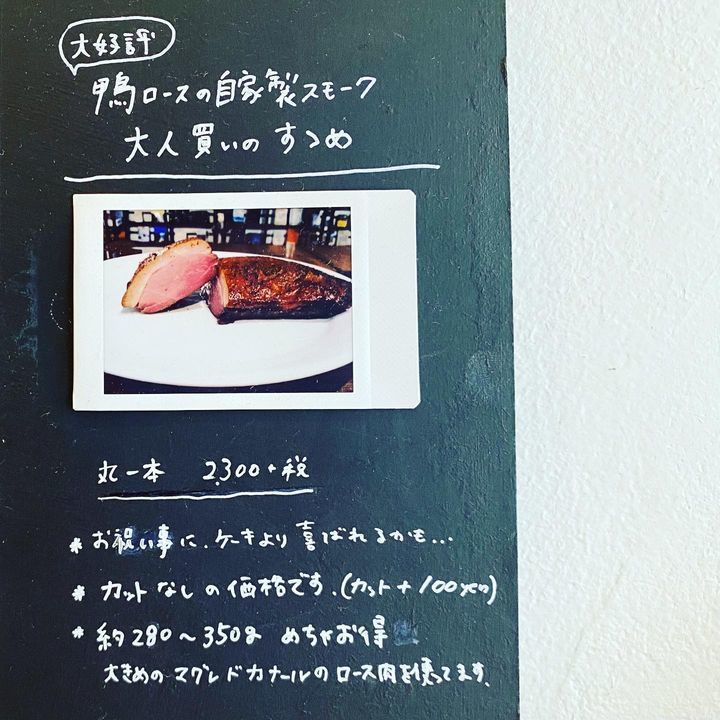 大好評
鴨ロースの自家製スモーク
大人買いのすゝめ
丸一本 2,300+税
* お祝い事に、ケーキより喜ばれるかも...
* カットなしの価格です。(カット+100yen)
* 約280〜350g めちゃお得
大きめのマグレドカナールのロース肉を使ってます。